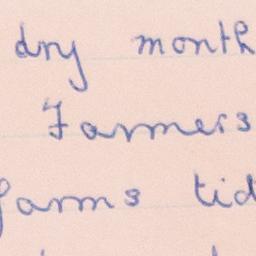 dry month
Farmers
farms tid